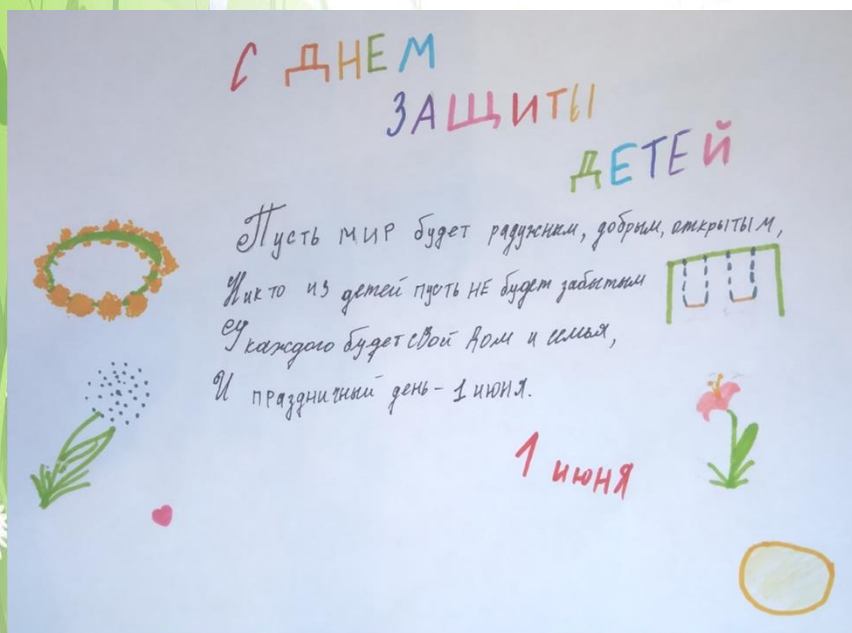 С ДНЕМ
ЗАЩИТЫ
ДЕТЕЙ
Пусть МИР будет радужным, добрым, открытым,
Никто из детей пусть НЕ будет забытым
У каждого будет свой дом и семья,
И праздничный день - 1 июня.
1 июня